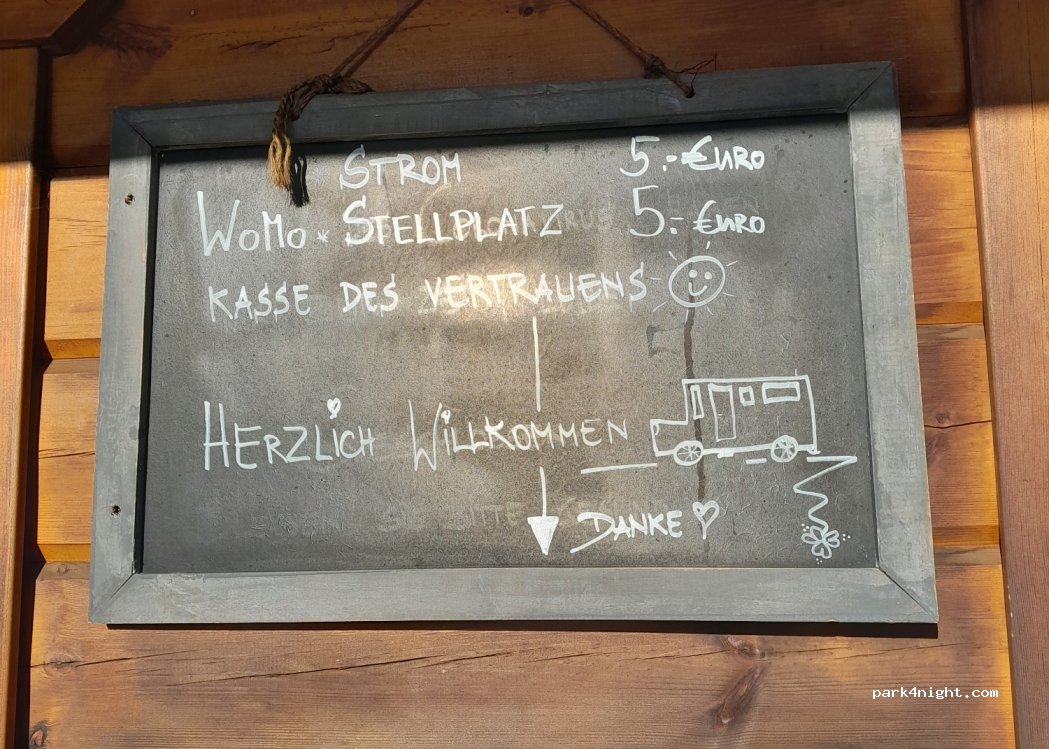 STROM 5.- €URO
WOMO * STELLPLATZ 5.- €URO
KASSE DES VERTRAUENS
HERZLICH WILLKOMMEN
DANKE
park4night.com